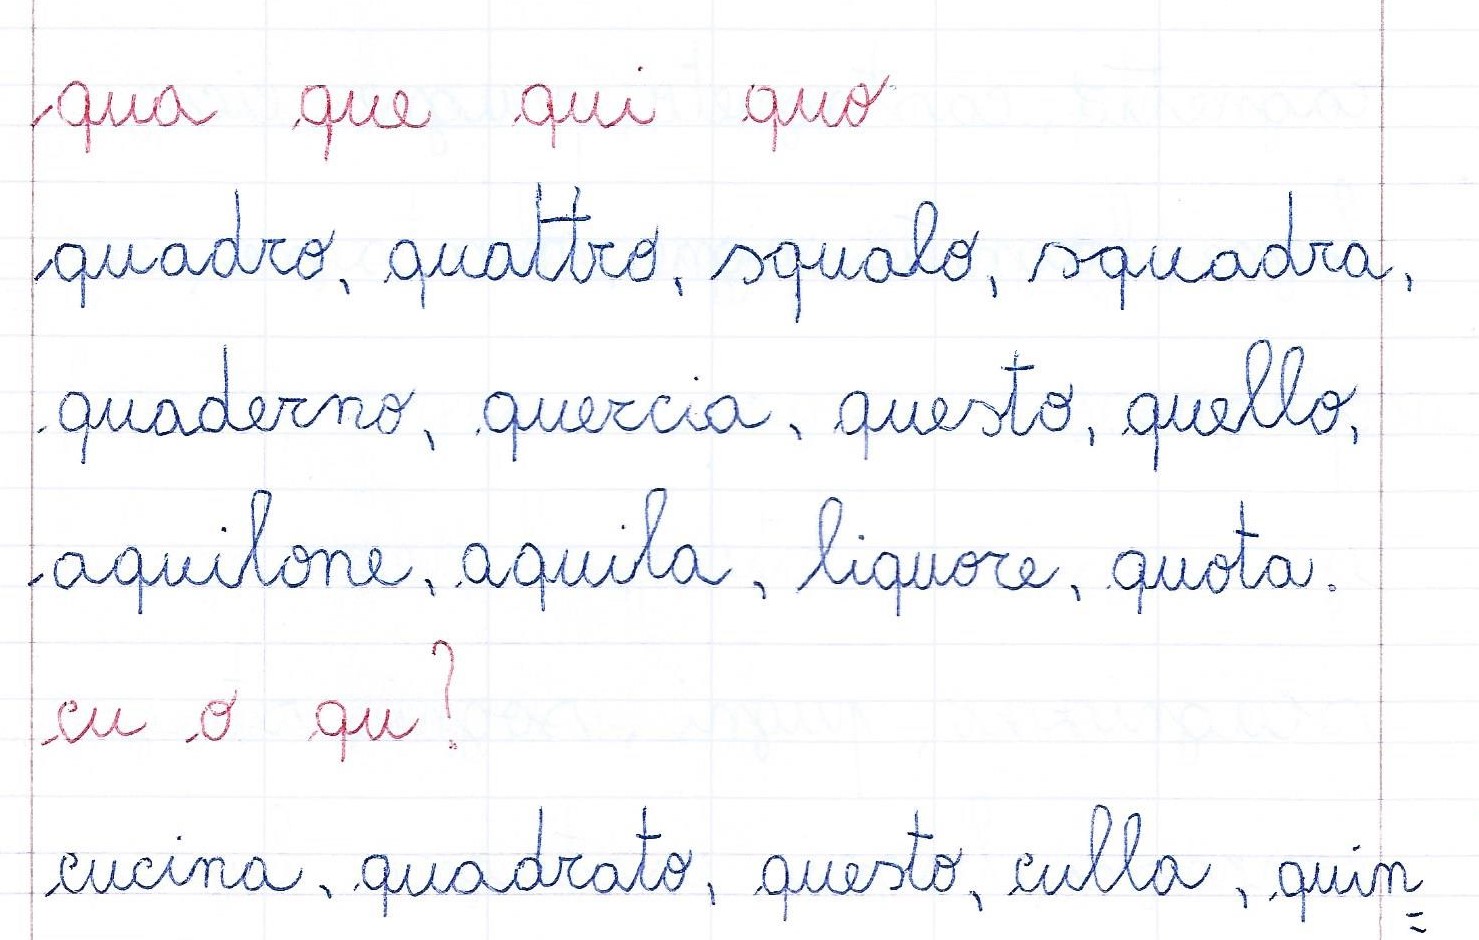 qua que qui quo
quadro, quattro, squalo, squadra,
quaderno, quercia, questo, quello,
aquilone, aquila, liquore, quota.
cu o qu?
cucina, quadrato, questo, culla, quin=